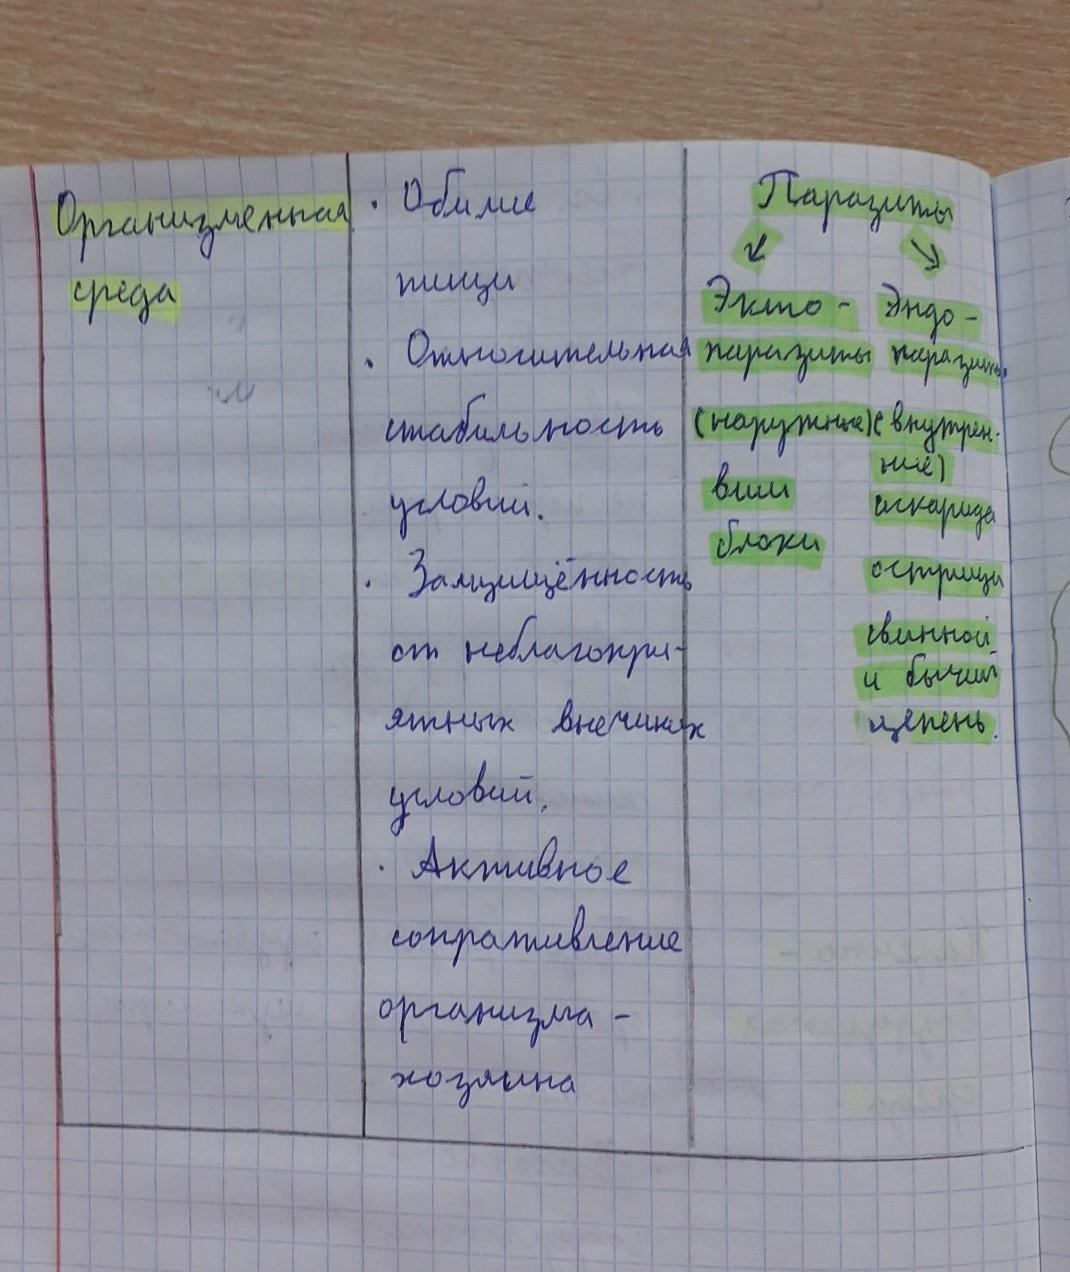 Организменная
среда
· Обилие
пищи
· Относительная
стабильность
условий.
· Защищённость
от неблагопри-
ятных внешних
условий.
· Активное
сопративление
организма -
хозяина
Паразиты
↙ ↘
Экто -
паразиты
(наружные)
вши
блохи
Эндо -
паразиты.
(внутрен-
ние)
аскарида
острицы
свинной
и бычий
цепень.